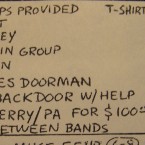 PS PROVIDED T-SHIRT
T
EY
IN GROUP
N
ES DOORMAN
BACKDOOR W/HELP
ERRY/PA FOR $100
BETWEEN BANDS